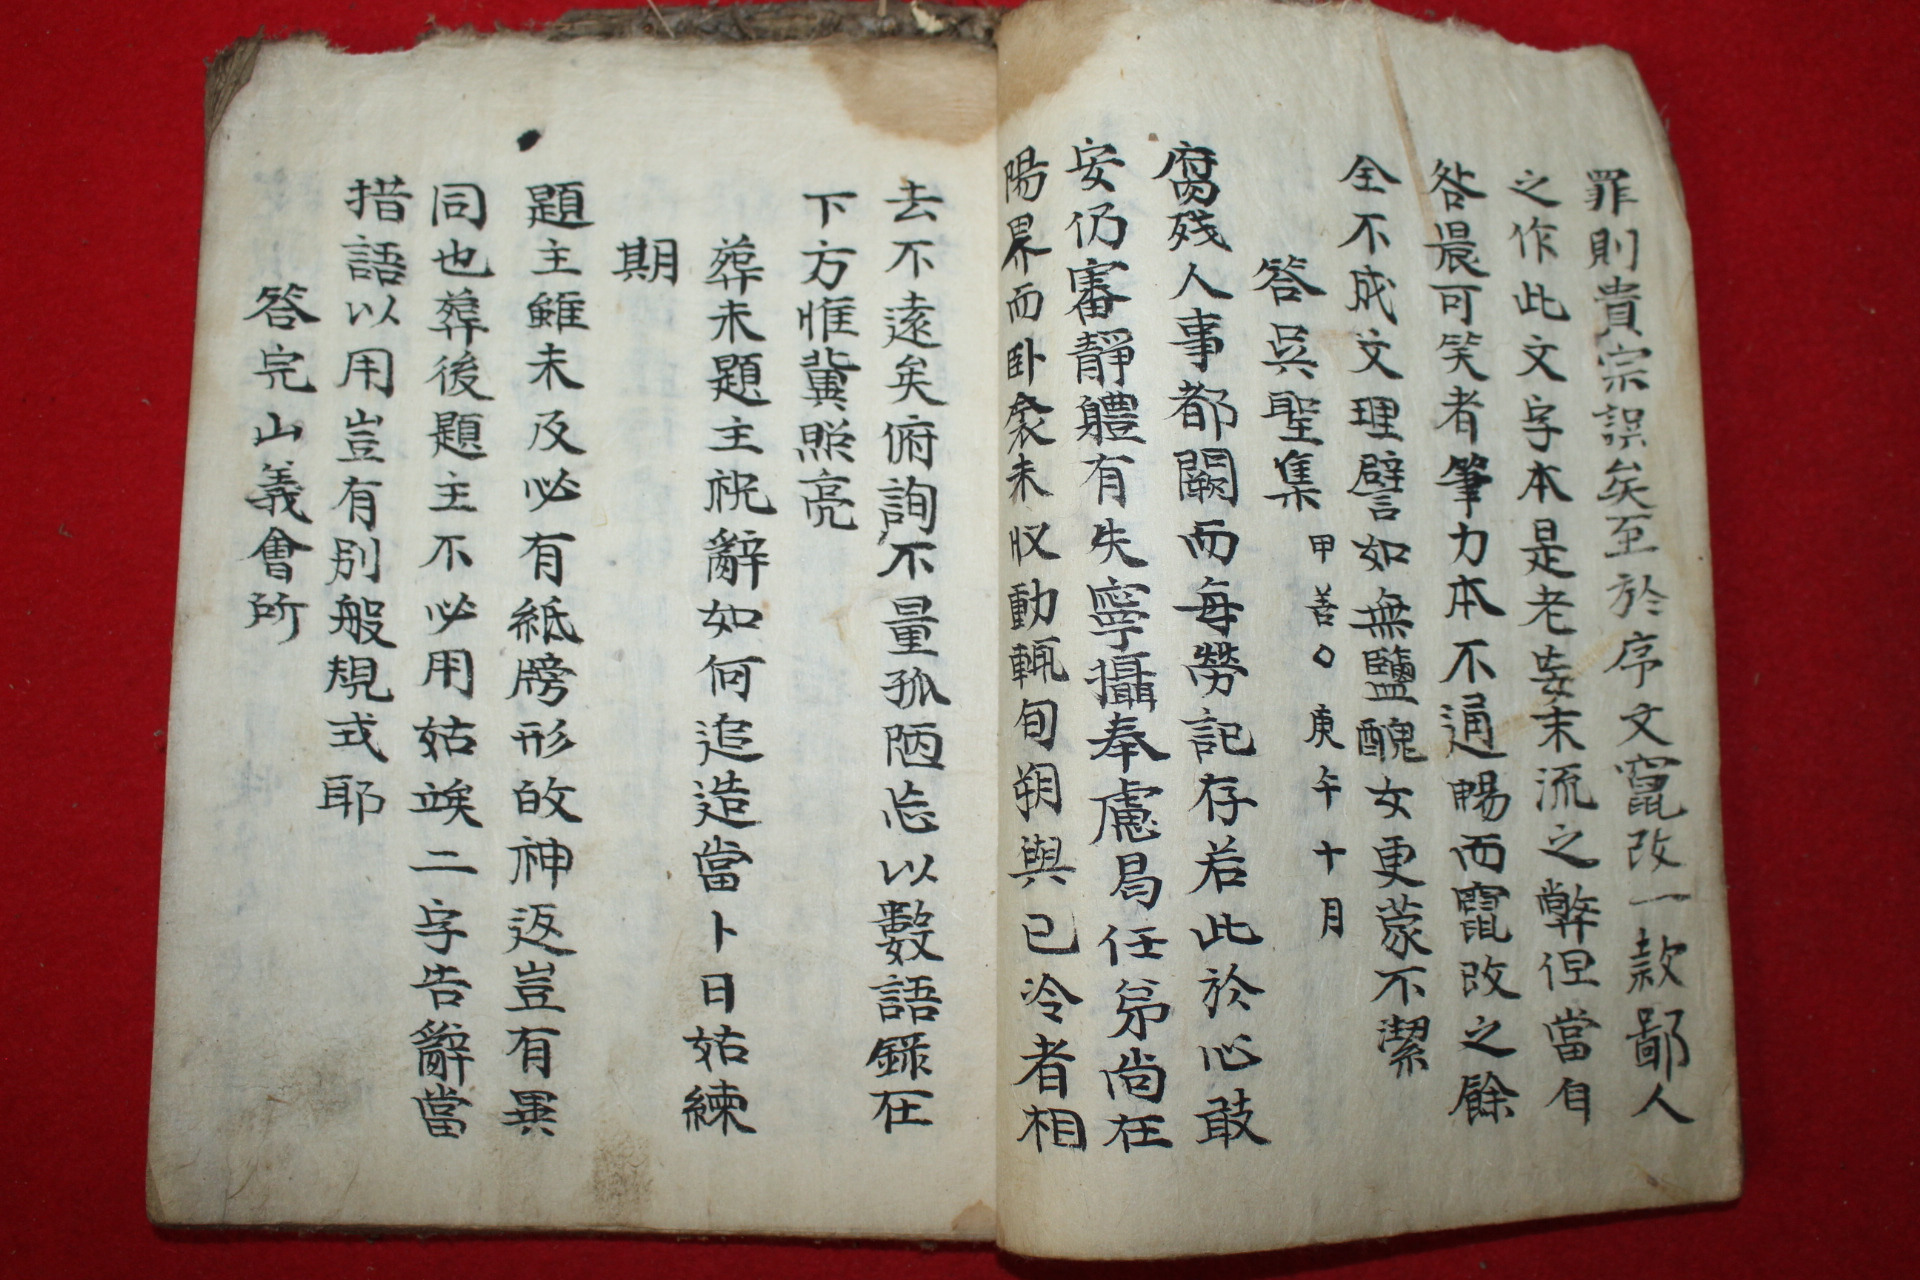 罪則貴宗誤矣至於序文竄改一款鄙人
之作此文字本是老妄末流之弊但當自
咎晨可笑者筆力本不通暢而竄改之餘
全不成文理譬如無鹽醜女更蒙不潔
答吳聖集 甲善○庚午十月
腐殘人事都闕而每勞記存若此於心敢
安仍審靜體有失寧攝奉慮曷任弟尚在
陽界而卧衾未收動輒旬朔與已冷者相
去不遠矣俯詢不量孤陋忘以數語錄在
下方惟冀照亮
葬未題主祝辭如何追造當卜日姑練
期
題主雖未及必有紙牓形的神返豈有異
同也葬後題主不必用姑竢二字告辭當
措語以用豈有別般規式耶
答完山義會所